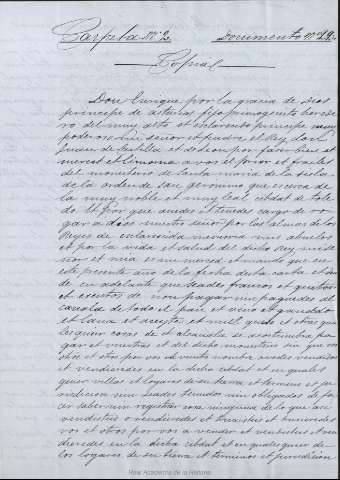 Carpeta nº 2 Documento nº 12.
Copia
Don Enrique por la gracia de dios
principe de asturias fijo primogenito herede
ro del muy alto et esclarecido principe muy
poderoso mi señor et padre el Rey Don
Juan de Castilla et de Leon por faser bien et
merced et limosna a vos el prior et frailes
del monesterio de Santa maria de la sisla
de la orden de san geronimo que es cerca de
la muy noble et muy leal cibdat de tole
do et por que avedes et tenedes cargo de ro
gar a dios nuestro señor por las almas de los
Reyes de esclarecida memoria mis abuelos
et por la vida et salud del dicho Rey mi se
ñor et mia es mi merced et mando que en
este presente año de la fecha desta carta et den
de en adelante que seades francos et quitos
et esentos de non pagar nin paguedes al
cavala de todo el pan et vino et ganados
et lana et aceyte et miel queso et otras qua
lesquier cosas de que alcavala se acostumbra pa
gar et vuestras et del dicho monesterio sin que vos
otros et otro por vos en vuestro nombre avedes vendido
et vendieredes en la dicha cibdat et en quales
quier villas et logares de su tierra et termino et ju
risdicion nin seades tenudos nin obligados de fa
cer saber nin registrar cosa ninguna de lo que asi
vendistes o vendieredes et troxistes et truxieredes
vos et otros por vos a vender et vendistes et ven
dieredes en la dicha cibdat et en qualesquier de
los logares de su tierra et terminos et jurisdicion
Real Academia de la Historia